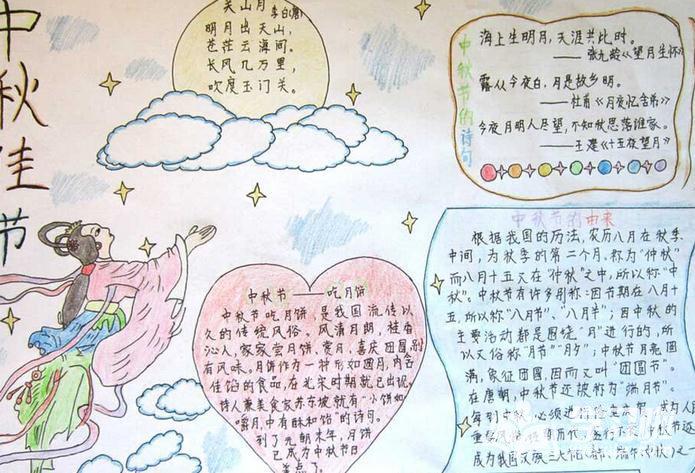 中秋佳节
关山月 李白(唐)
明月出天山,
苍茫云海间。
长风几万里,
吹度玉门关。
中秋节的诗句
海上生明月,天涯共此时。
——张九龄《望月怀
露从今夜白,月是故乡明。
——杜甫《月夜忆舍弟》
今夜月明人尽望,不知秋思落谁家。
——王建《十五夜望月》
中秋节——吃月饼
中秋节吃月饼,是我国流传
久的传统风俗。风清月朗,桂香
沁人,家家尝月饼、赏月,喜庆团圆,别
有风味。月饼作为一种形如圆月,内含
佳馅的食品,在北宋时期就已出现。
诗人兼美食家苏东坡就有“小饼如
嚼月,中有酥和饴”的诗句。
到了元朝末年,月饼
已成为中秋节
美点了。
中秋节的由来
根据我国的历法,农历八月在秋季
中间,为秋季的第二个月,称为“仲秋”
而八月十五又在“仲秋”之中,所以称“中
秋”。中秋节有许多别称:因节期在八月十
五,所以称“八月节”、“八月半”;因中秋的
主要活动都是围绕“月”进行的,所
以又俗称“月节”“月夕”;中秋节月亮圆
满,象征团圆,因而又叫“团圆节”。
在唐朝,中秋节还被称为“端月节”。